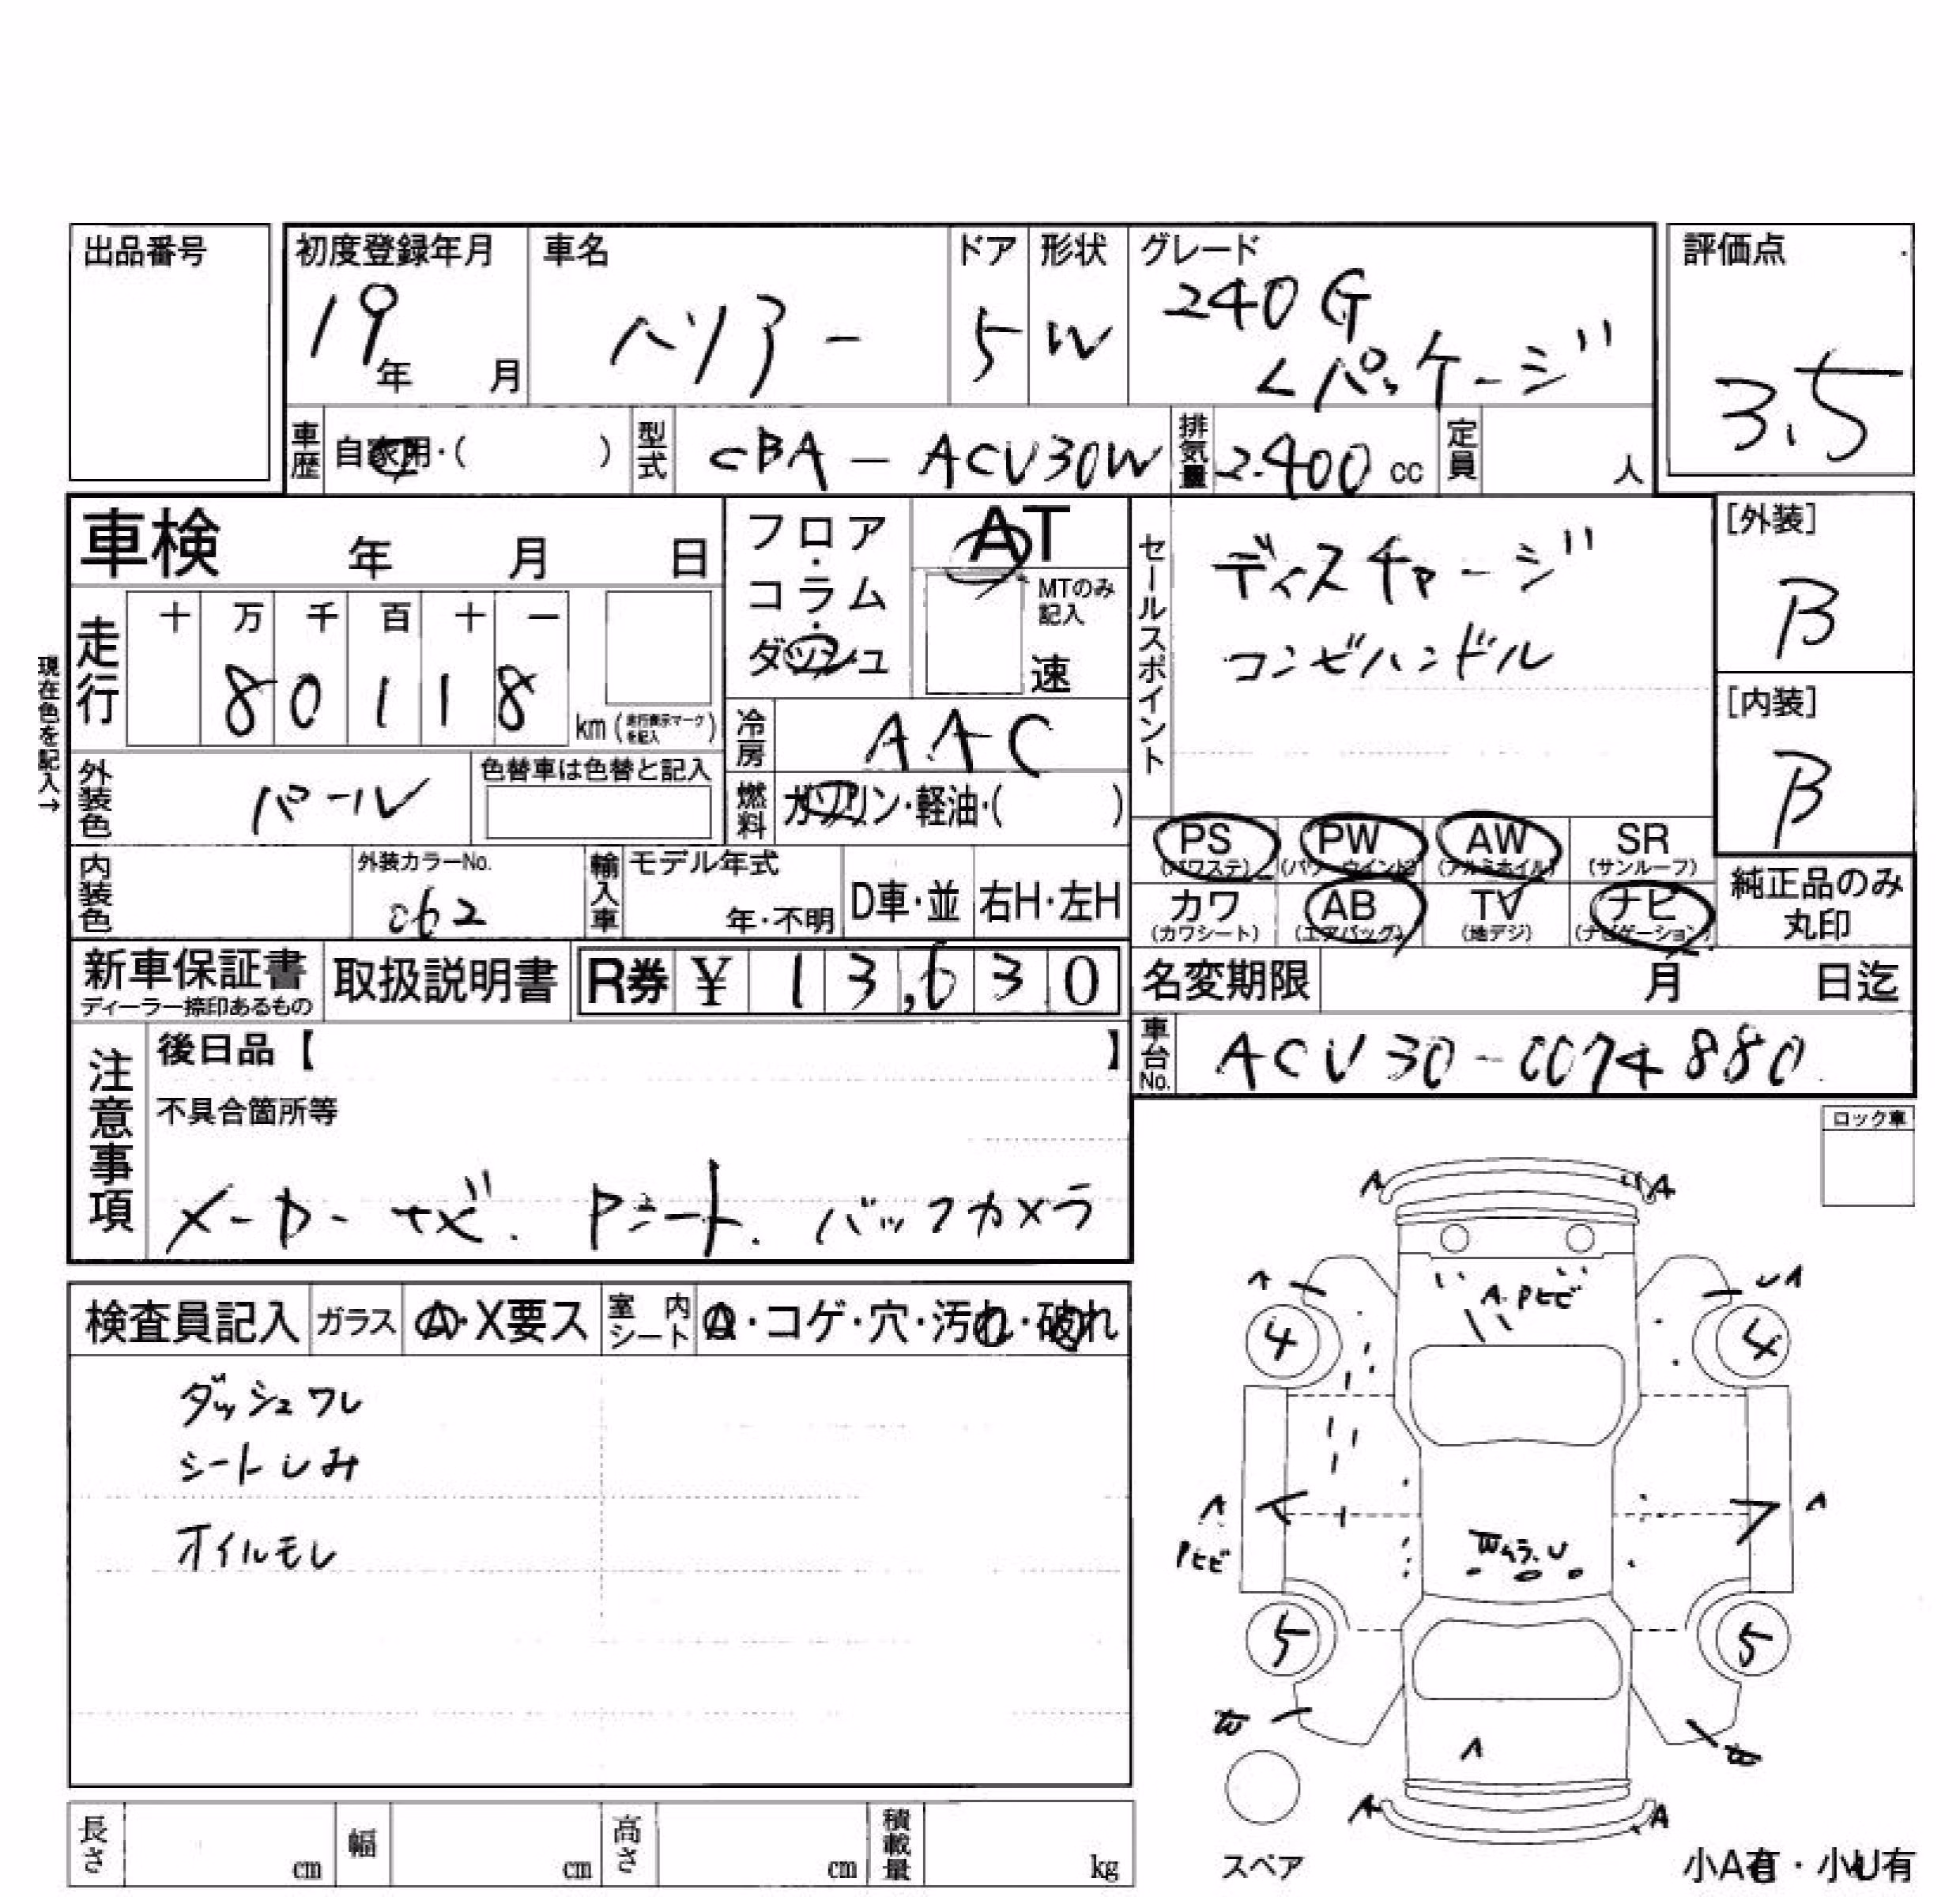 出品番号
初度登録年月 車名 ドア 形状 グレード 評価点
19年 月 ハリアー 5 W 240G
Lパッケージ
3.5
車歴 自家用・( ) 型式 CBA-ACU30W 排気量 2400cc 定員 人
車検 年 月 日
フロア・コラム・ダッシュ
AT
MTのみ記入
速
セールスポイント
ディスチャージ
コンビハンドル
[外装]
B
[内装]
B
現在色を記入→
走行 十 万 千 百 十 一
8 0 1 1 8 km (走行表示マークを記入)
冷房 AAC
外装色 パール 色替車は色替と記入
燃料 ガソリン・軽油・( )
PS (パワステ) PW (パワーウインド) AW (アルミホイル) SR (サンルーフ)
カワ (カワシート) AB (エアバッグ) TV (地デジ) ナビ (ナビゲーション)
純正品のみ丸印
内装色 外装カラーNo. 062 輸入車 モデル年式 年・不明 D車・並 右H・左H
新車保証書 ディーラー捺印あるもの 取扱説明書 R券 ¥ 13,630
名変期限 月 日迄
車台No. ACU30-0074880
注意事項
後日品【 】
不具合箇所等
メーカーナビ. Pシート. バックカメラ
ロック車
検査員記入 ガラス A・X要ス 室内シート A・コゲ・穴・汚れ・破れ
ダッシュワレ
シートしみ
オイルモレ
A A
A UA
A.Pヒビ
4 4
A A
Pヒビ
Wムラ.U
5 5
W W
A
A A
スペア
小A有・小U有
長さ cm 幅 cm 高さ cm 積載量 kg